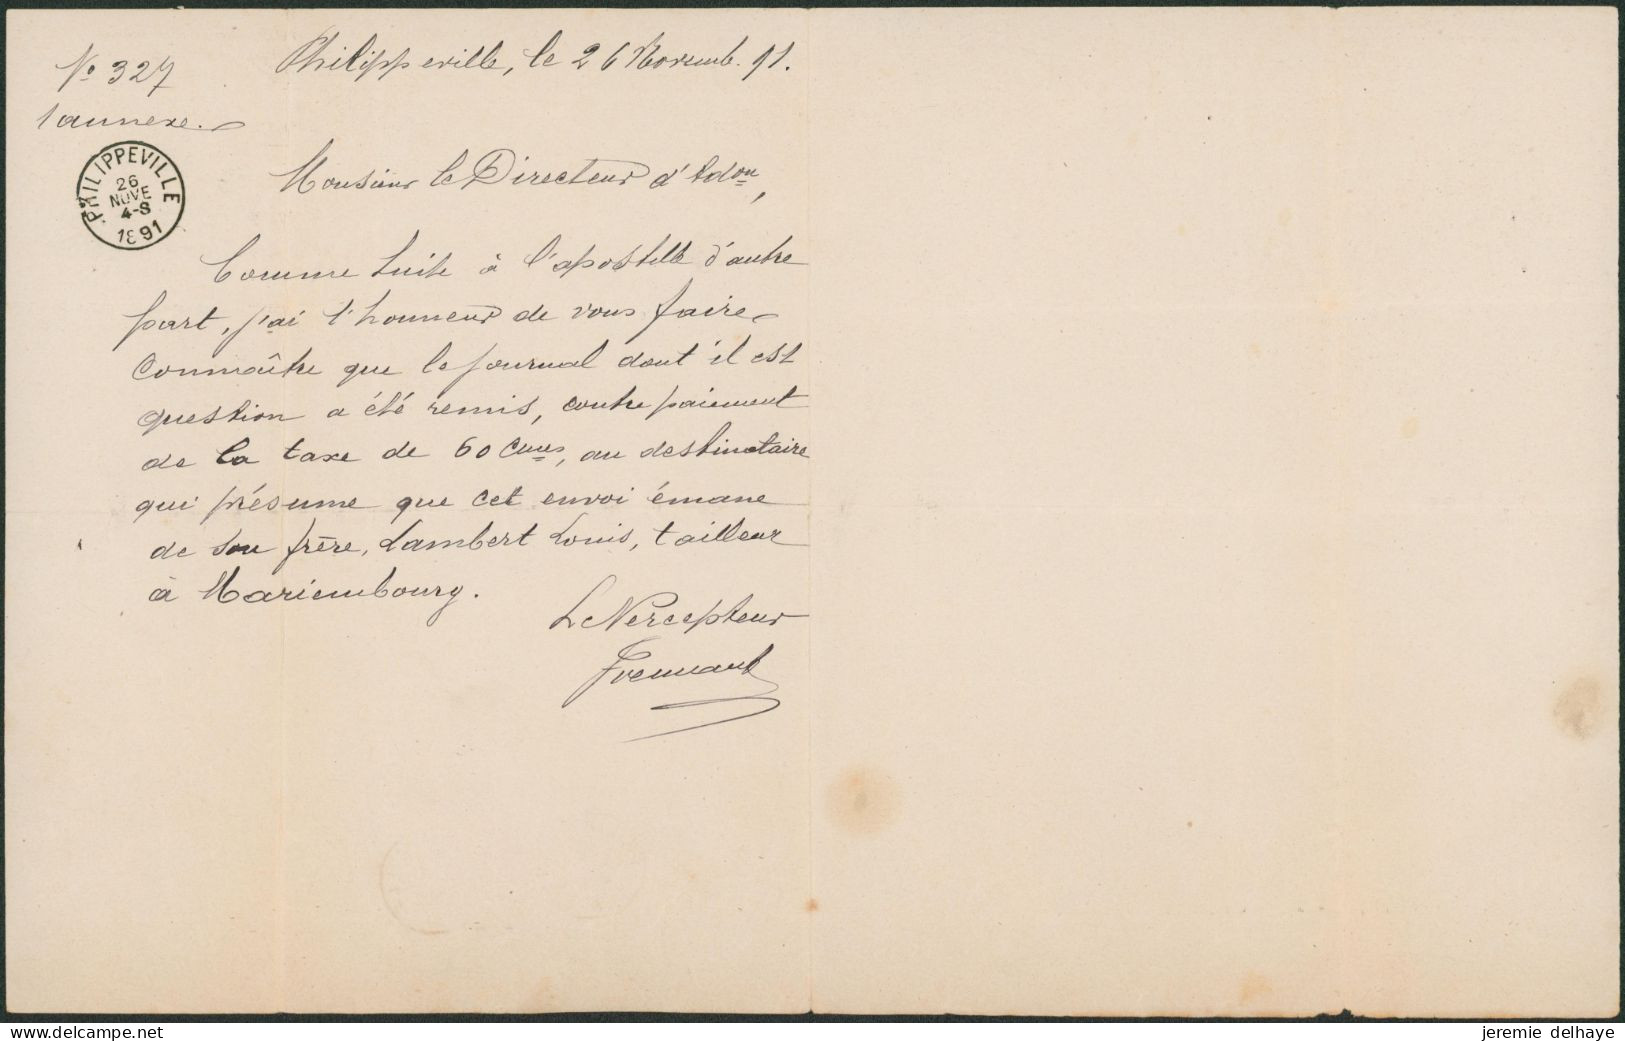 N° 327
1 annexe.
Philippeville, le 26 Novemb. 91.
PHILIPPEVILLE
26
NOVE
4-S
1891
Monsieur le Directeur d'Adon,
Comme suite à l'apostille d'autre
part, j'ai l'honneur de vous faire
connaître que le journal dont il est
question a été remis, contre paiement
de la taxe de 60 Cmes, au destinataire
qui présume que cet envoi émane
de son frère, Lambert Louis, tailleur
à Mariembourg.
Le Percepteur
jeremie delhaye